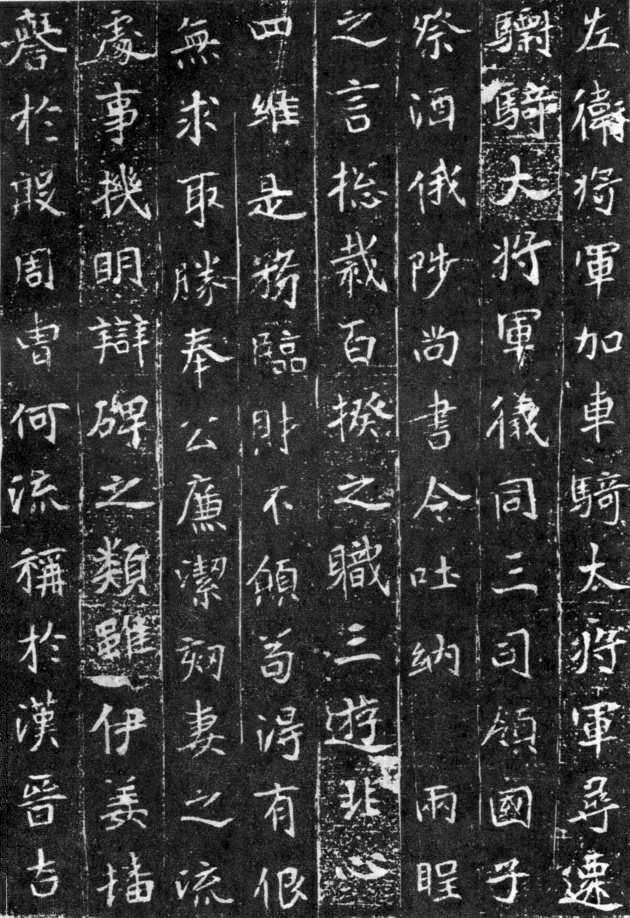 左衛將軍加車騎大將軍尋遷
驃騎大將軍儀同三司領國子
祭酒俄陟尚書令吐納 兩聖
之言揔裁百揆之職三遊非心
四維是務臨財不顧苟淂有佷
無求取勝奉公廉潔剋妻之流
處事機明辯碑之類雖伊姜播
譽於殷周曹何流稱於漢晉古